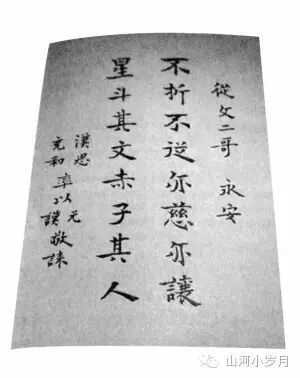 從文二哥 永安
不折不從亦慈亦讓
星斗其文赤子其人
漢思 元
充和 率以 謨 敬誄
山河小岁月